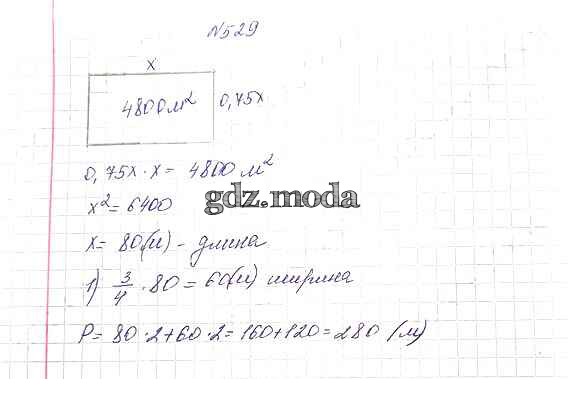 N529
x
4800м² 0,75x
0,75x · x = 4800 м²
x² = 6400
gdz.moda
x = 80(м) - длина
1) 3/4 · 80 = 60(м) ширина
P = 80 · 2 + 60 · 2 = 160 + 120 = 280 (м)